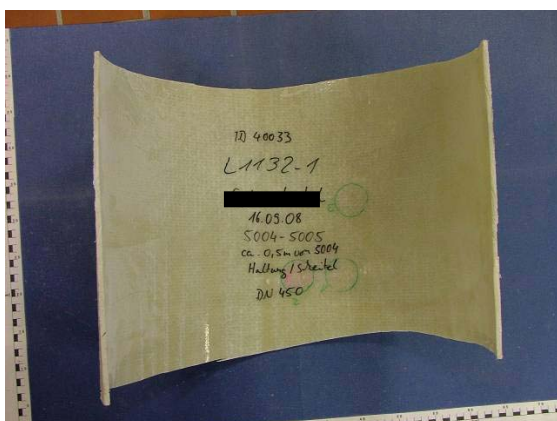 ID 40033
L1132-1
16.09.08
5004-5005
ca. 0,5m von 5004
Haltung / Scheitel
DN 450
2